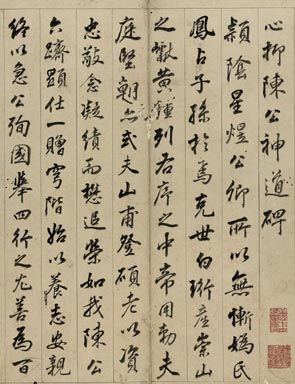 心抑陳公神道碑
穎陰星煜公卿所以無慚媯民
鳳占子孫於焉克世白珩產崇山
之獸黃鍾列右序之中帝用勅夫
庭堅朝亦式夫山甫登碩老以資
忠敬念凝績而懋追榮如我陳公
六躋顯仕一贈穹階始以養志安親
終以急公殉國舉四行之尤善爲百